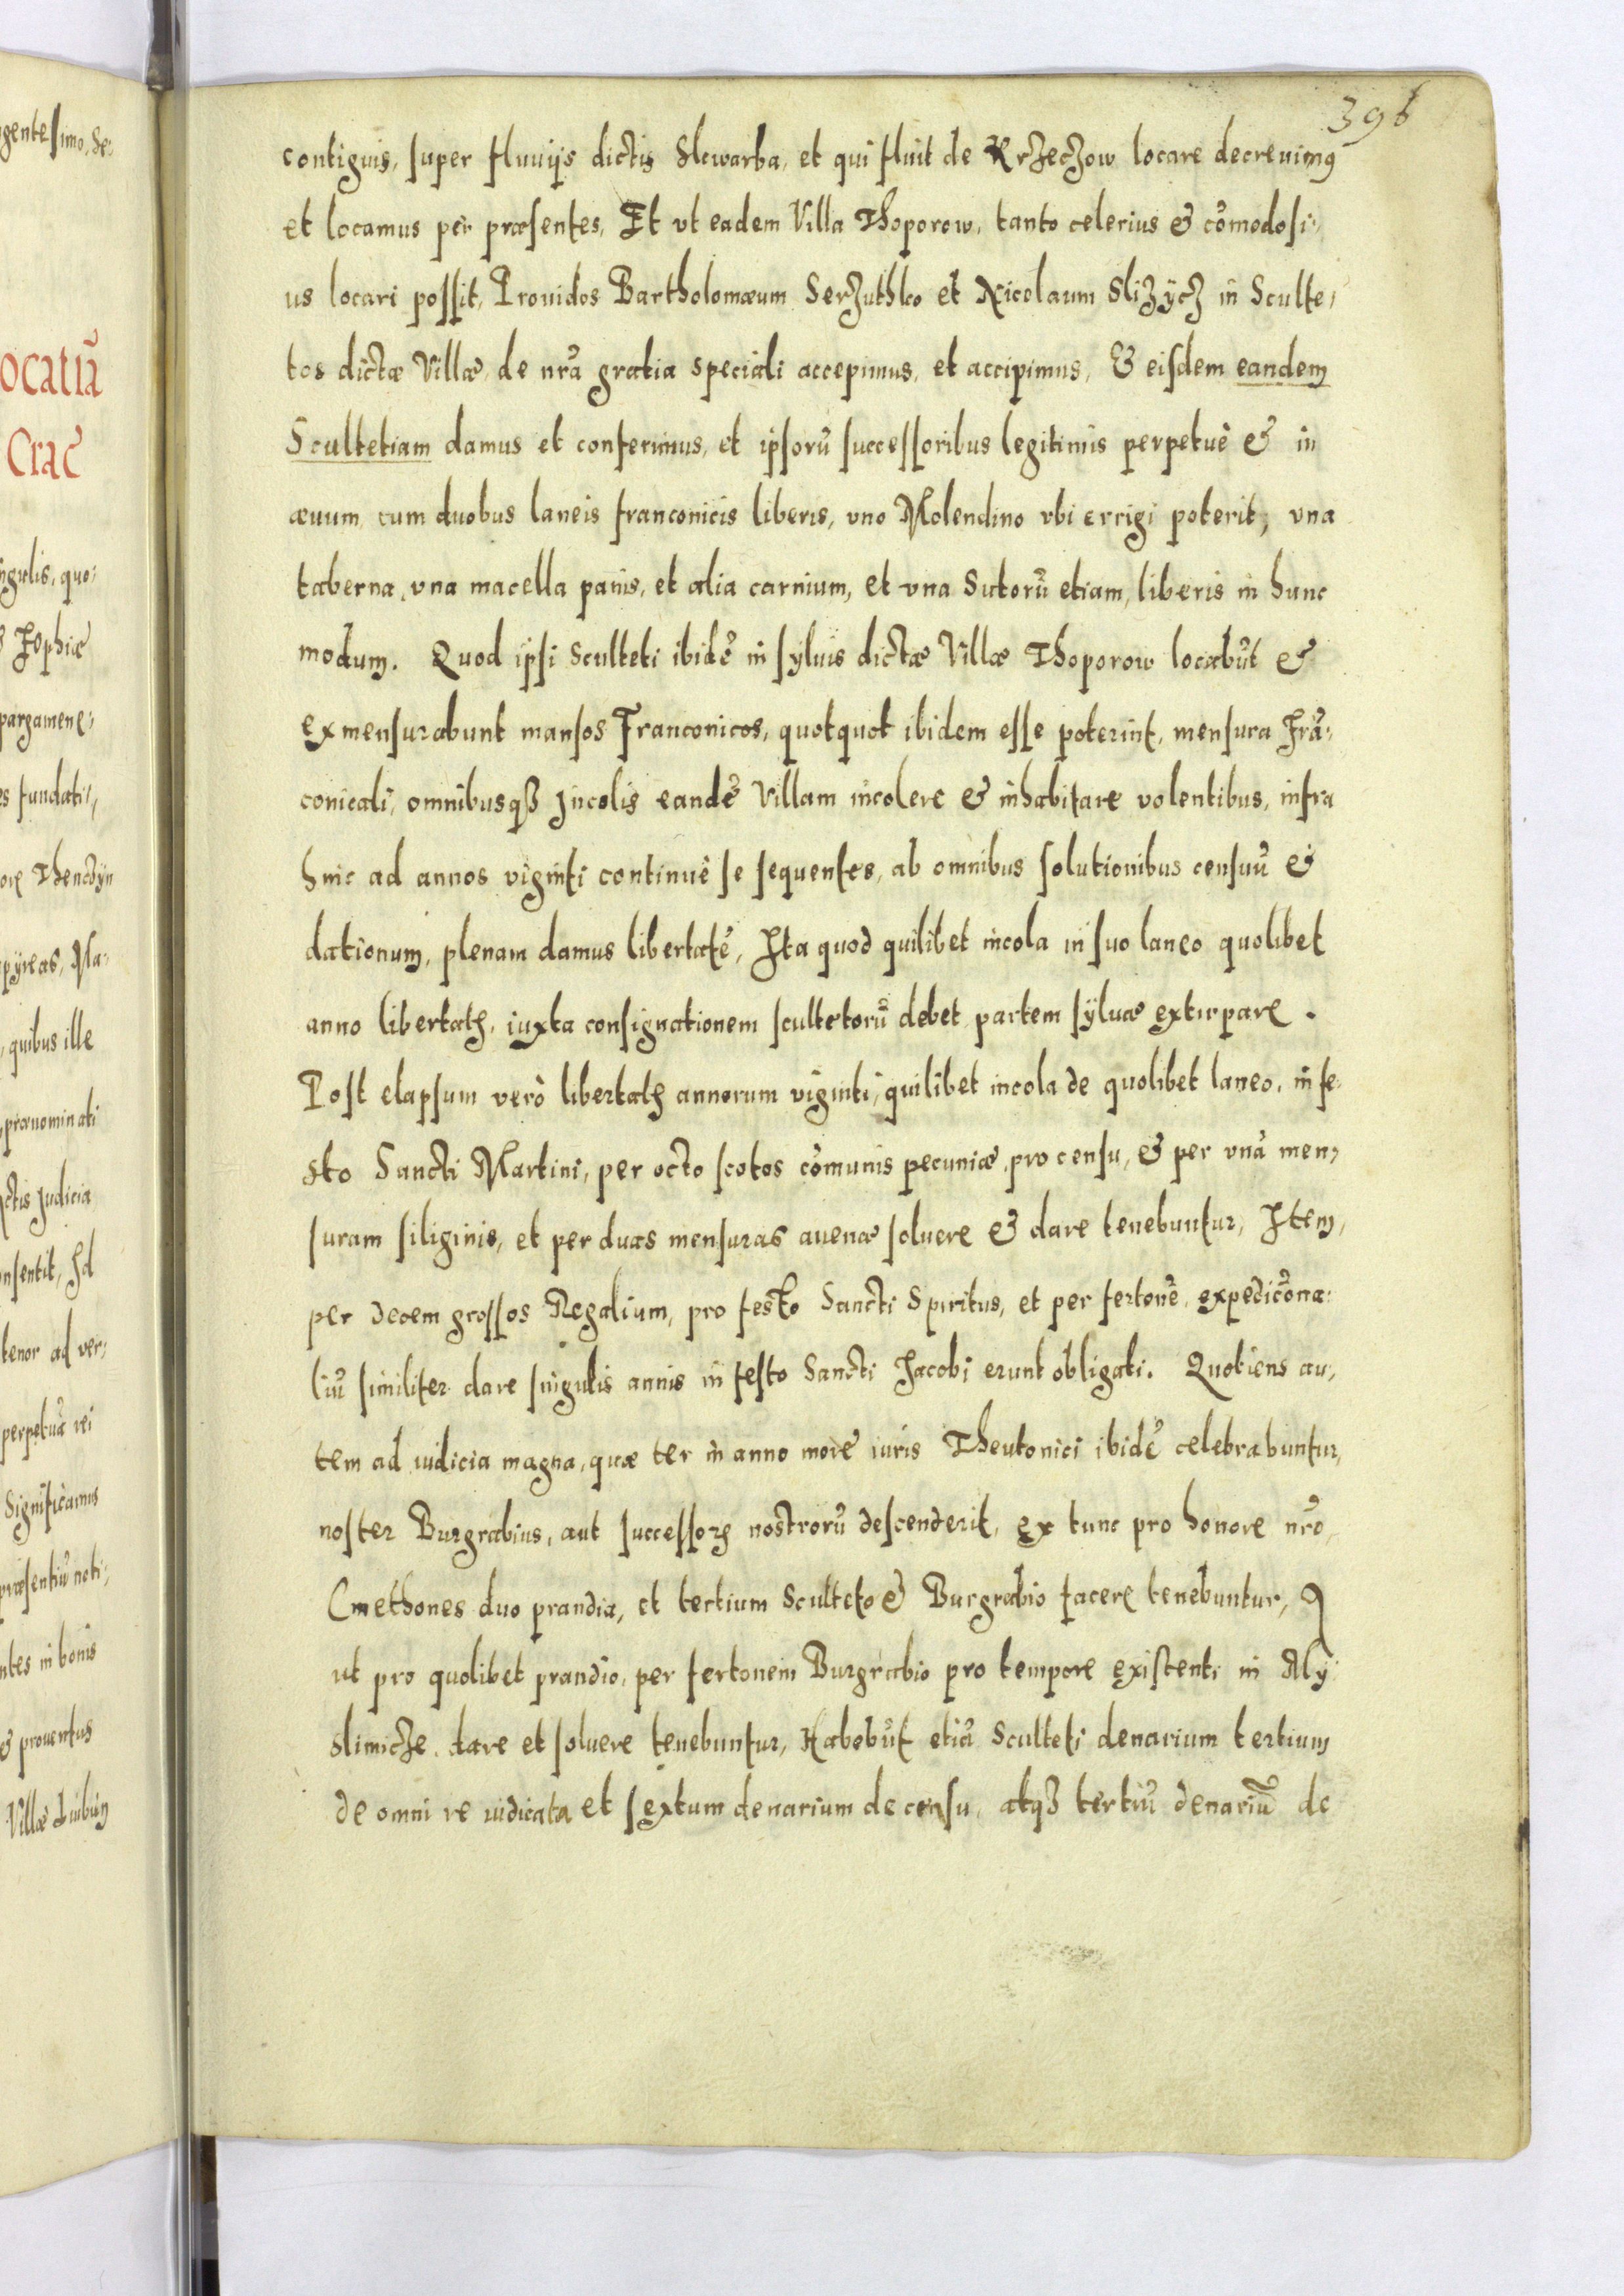 396
contiguis, super fluuijs dictis Skwarba, et qui fluit de Krzeczow locare decreuimus
et locamus per præsentes, Et vt eadem Villa Thoporow, tanto celerius & cōmodosi:
us locari possit, Prouidos Bartholomæum Serzuthko et Nicolaum Slizÿcz in Sculte,
tos dictæ Villæ, de nrā gratia speciali accepimus, et accipimus, & eisdem eandem
Scultetiam damus et conferimus, et ipsorū successoribus legitimis perpetuè & in
æuum, cum duobus laneis franconicis liberis, vno Molendino vbi errigi poterit, vna
taberna, vna macella panis, et alia carnium, et vna Sutorū etiam, liberis in hunc
modum. Quod ipsi Sculteti ibidē in syluis dictæ Villæ Thoporow locabūt &
exmensurabunt mansos Franconicos, quotquot ibidem esse poterint, mensura Frā:
conicali, omnibusqȝ Incolis eandē Villam incolere & inhabitare volentibus, infra
hinc ad annos viginti continuè se sequentes, ab omnibus solutionibus censuū &
dationum, plenam damus libertatē, Ita quod quilibet incola in suo laneo quolibet
anno libertatꝭ, iuxta consignationem scultetorū debet partem sÿluæ extirpare.
Post elapsum verò libertatꝭ annorum viginti, quilibet incola de quolibet laneo, in fe:
sto Sancti Martini, per octo scotos cōmunis pecuniæ, pro censu, & per vnā men,
suram siliginis, et per duas mensuras auenæ soluere & dare tenebuntur, Item,
per decem grossos Regalium, pro festo Sancti Spiritus, et per fertonē, expedicōna:
liū similiter dare singulis annis in festo Sancti Jacobi erunt obligati. Quotiens au,
tem ad iudicia magna, quæ ter in anno more iuris Theutonici ibidē celebrabuntur,
noster Burgrabius, aut successorꝭ nostrorū descenderit, ex tunc pro honore nrō
Cmethones duo prandia, et tertium Sculteto & Burgrabio facere tenebuntur,
ut pro quolibet prandio, per fertonem Burgrabio pro tempore existenti in My:
slimicze dare et soluere tenebuntur, Habebūt etiā Sculteti denarium tertium
de omni re iudicata et sextum denarium de censu, atqȝ tertiū denariū de
gentesimo, Se:
ocatiā
Crac
ngulis, quo:
pargamene:
s fundati
Thenczÿn
pÿreas, Ma:
quibus ille
prænominati
Judicia
nsentit, Id
tenor ad ver:
perpetuā rei
Significamus
præsentiū noti:
ntes in bonis
& prouentus
Villæ